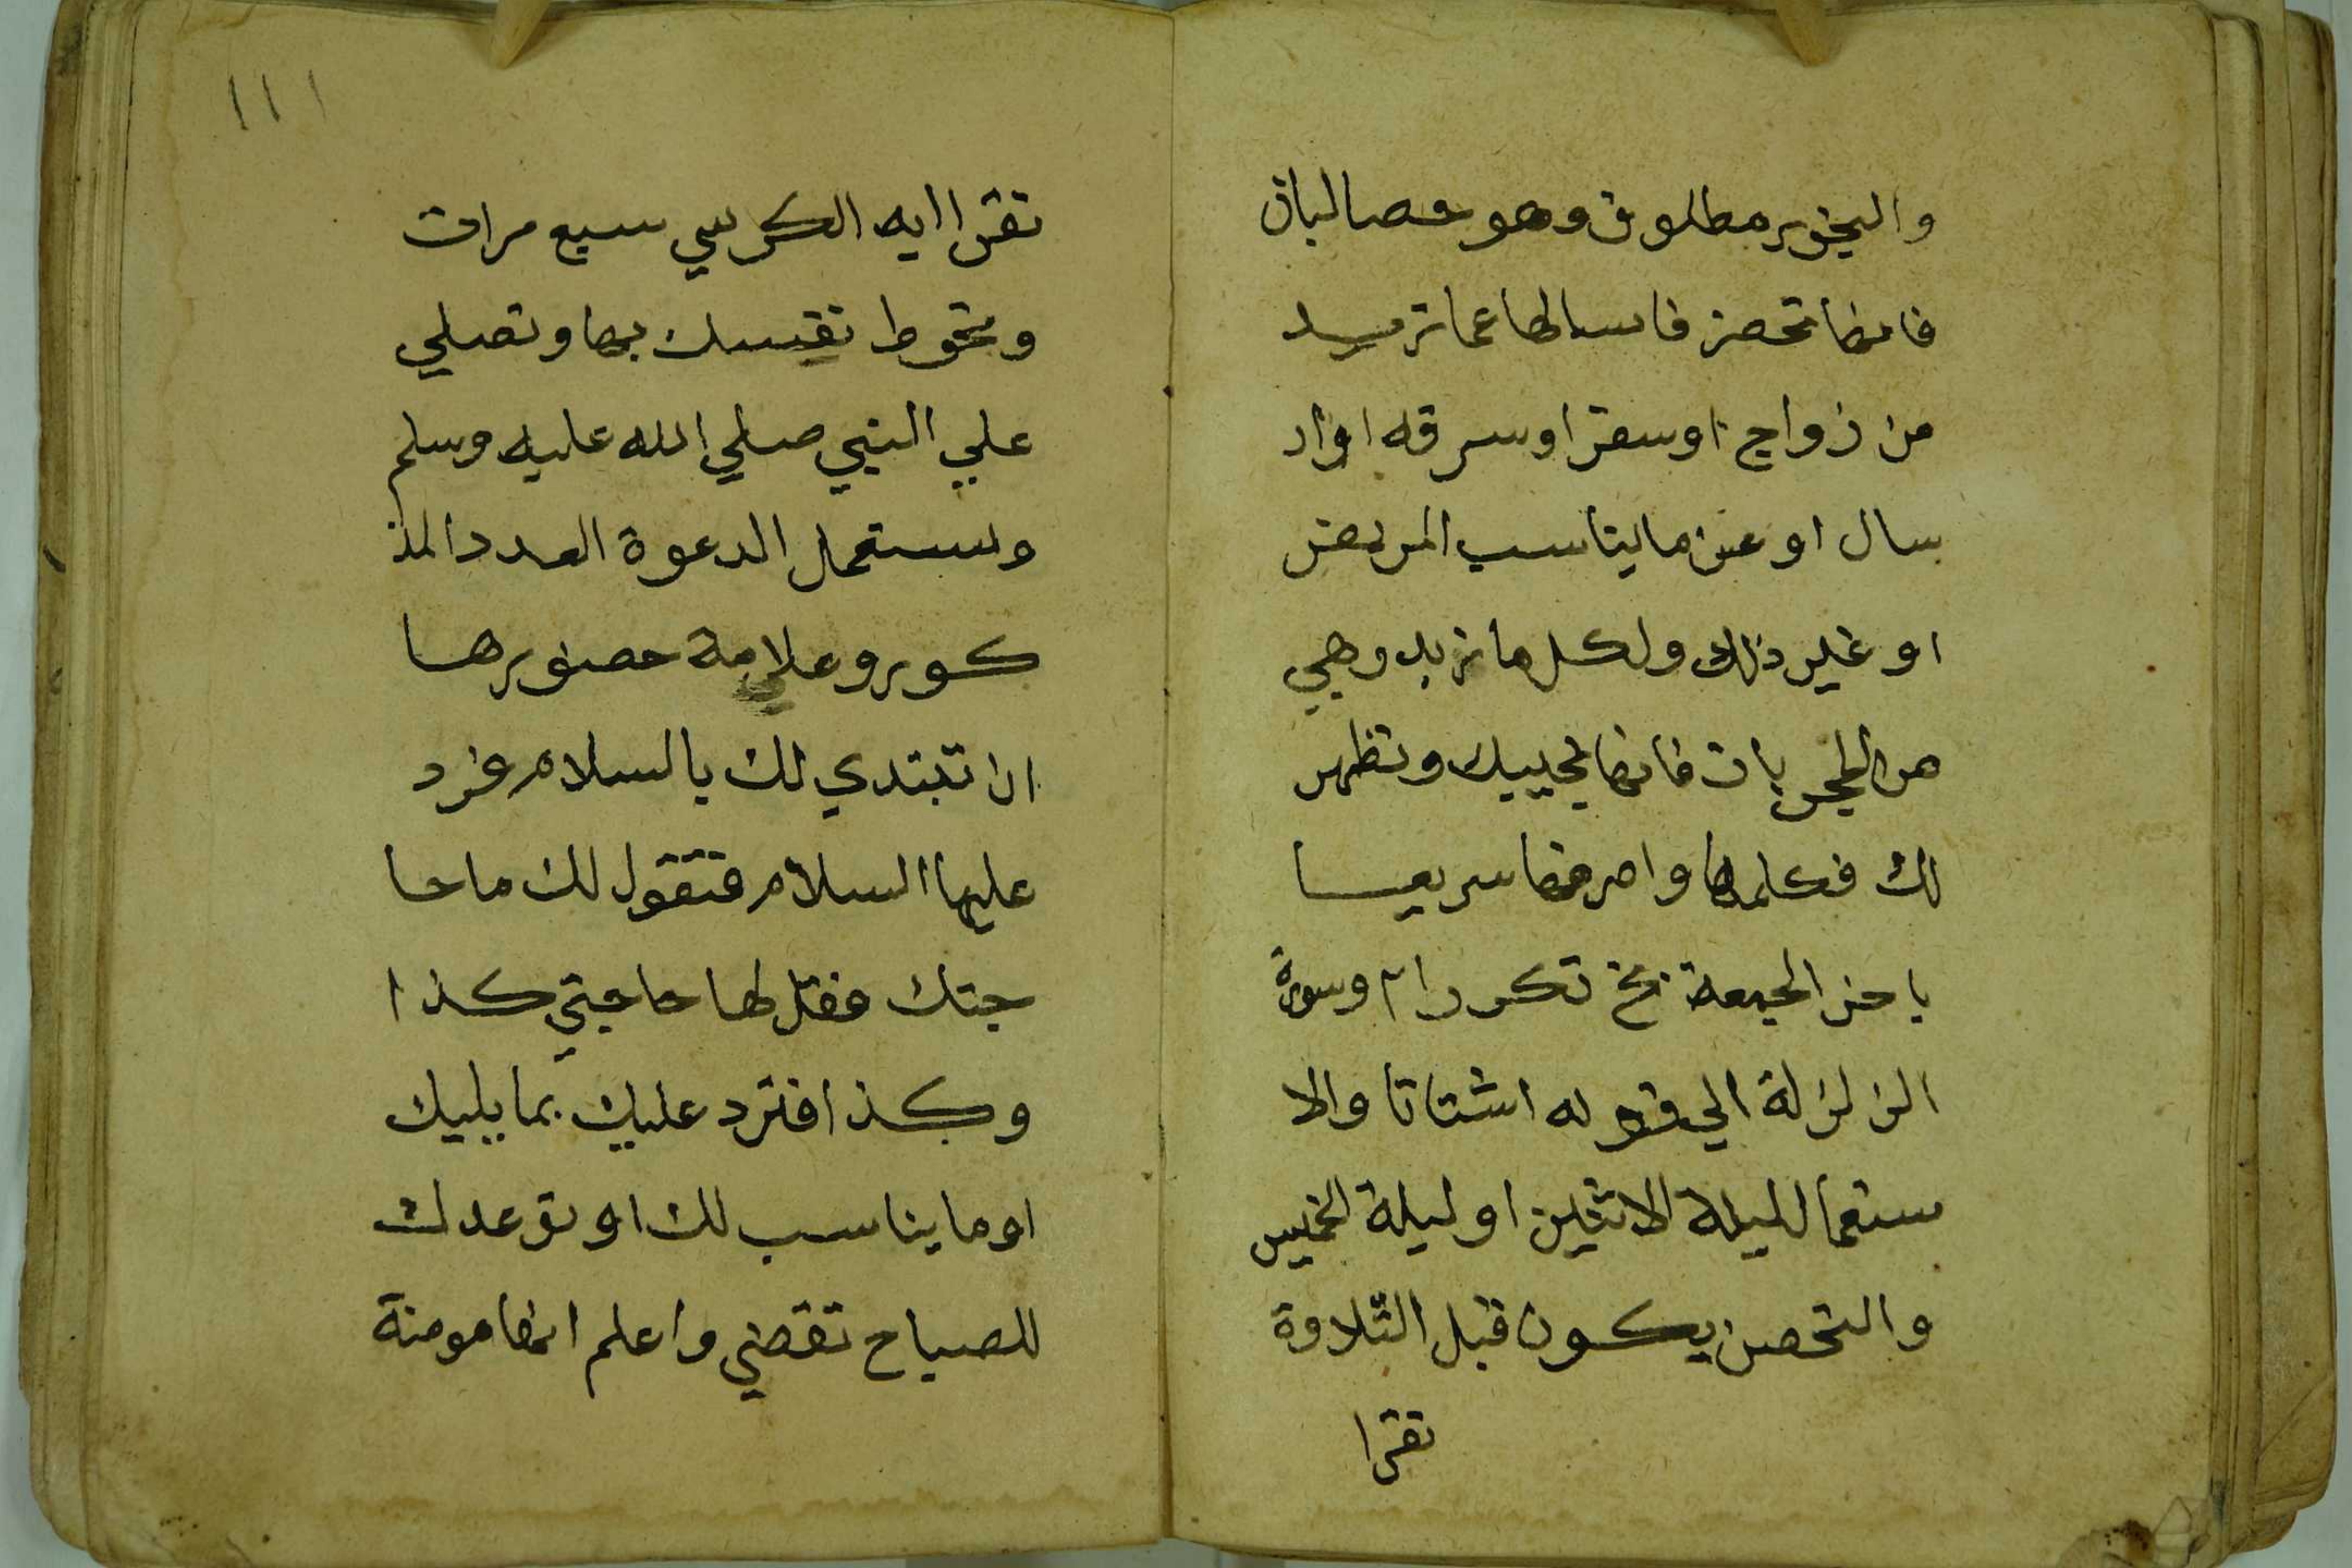 والبخور مطلوق وهو حصا لبان
فانها تحضر فاسالها عما تريد
من زواج او سفر او سرقه او ار
سال او عن ما يناسب المريض
او غير ذلك ولكل ما تريد وهي
من المجربات فانها تجيبك وتظهر
لك فكلمها واصرفها سريعا
باخر الجمعة تكرر وسورة
الزلزلة الي قوله اشتاتا والا
ستعمال ليلة الاثنين او ليلة الخميس
والتحصن يكون قبل التلاوة
تقرا
١١١
تقرا ايه الكرسي سبع مرات
وتحوط نفسك بها وتصلي
علي النبي صلي الله عليه وسلم
وتستعمل الدعوة العدد المذ
كور وعلامة حضورها
ان تبتدي لك بالسلام فرد
عليها السلام فتقول لك ما حا
جتك فقل لها حاجتي كذا
وكذا فترد عليك بما يليك
او ما يناسب لك او توعدك
للصباح تقضي واعلم انها مومنة